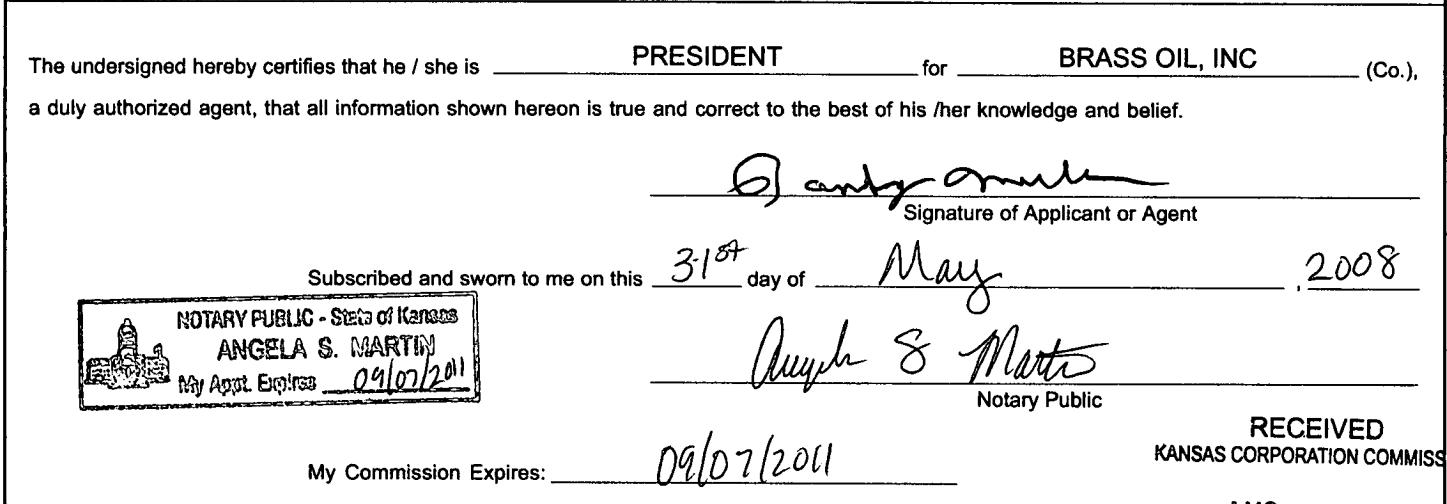 The undersigned hereby certifies that he / she is PRESIDENT for BRASS OIL, INC (Co.),
a duly authorized agent, that all information shown hereon is true and correct to the best of his /her knowledge and belief.
Signature of Applicant or Agent
Subscribed and sworn to me on this 31st day of May , 2008
NOTARY PUBLIC - State of Kansas
ANGELA S. MARTIN
My Appt. Expires 09/07/2011
Angela S Martin
Notary Public
RECEIVED
KANSAS CORPORATION COMMISS
My Commission Expires: 09/07/2011